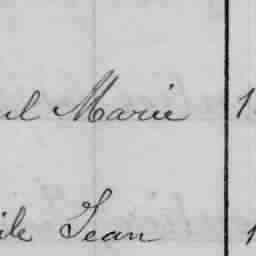 ul Marie 1
ile Jean 1